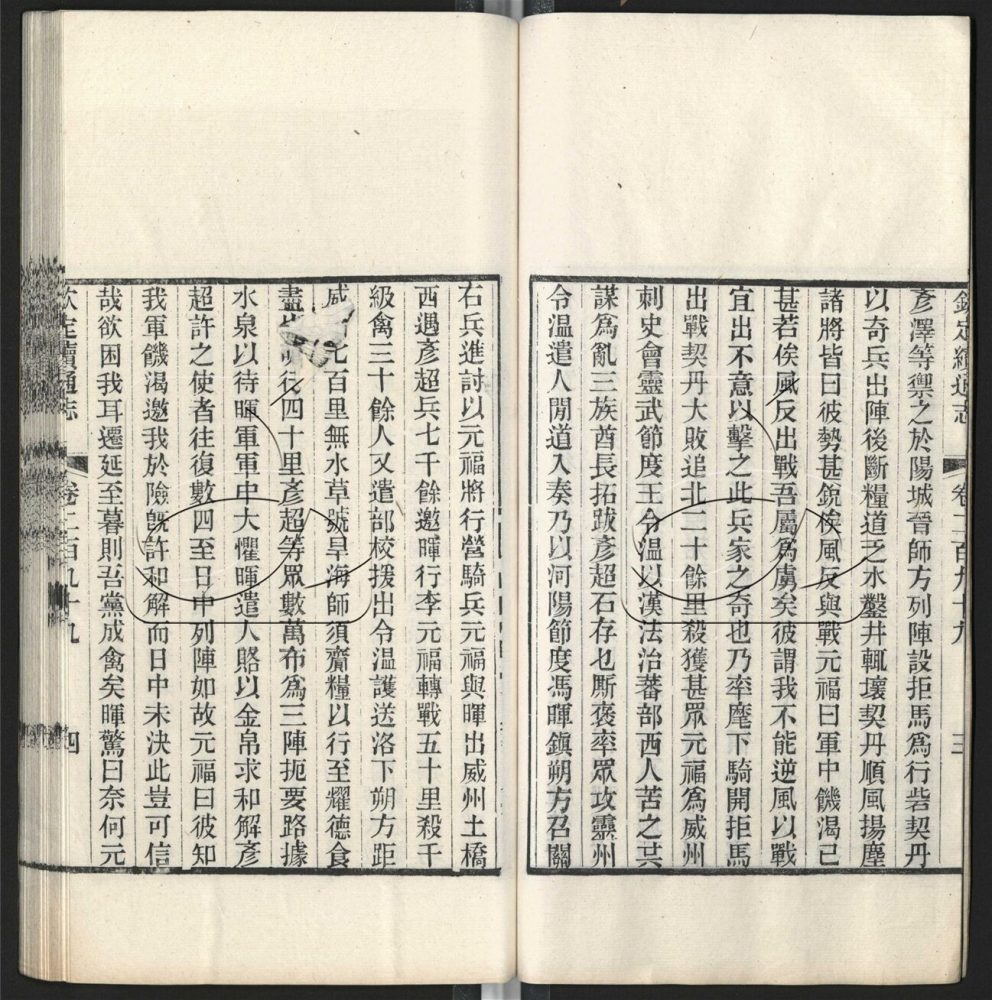 欽定續通志 卷二百九十九 三
彥澤等禦之於陽城晉師方列陣設拒馬爲行砦契丹
以奇兵出陣後斷糧道乏水鑿井輒壞契丹順風揚塵
諸將皆曰彼勢甚銳俟風反與戰元福曰軍中饑渴已
甚若俟風反出戰吾屬爲虜矣彼謂我不能逆風以戰
宜出不意以擊之此兵家之奇也乃率麾下騎開拒馬
出戰契丹大敗追北二十餘里殺獲甚眾元福爲威州
刺史會靈武節度王令溫以漢法治蕃部西人苦之其
謀爲亂三族酋長拓跋彥超石存乜厮褒率眾攻靈州
令溫遣人閒道入奏乃以河陽節度馮暉鎮朔方召關
右兵進討以元福將行營騎兵元福與暉出威州土橋
西遇彥超兵七千餘邀暉行李元福轉戰五十里殺千
級禽三十餘人又遣部校援出令溫護送洛下朔方距
威 七百里無水草號旱海師須齎糧以行至耀德食
盡 行四十里彥超等眾數萬布爲三陣扼要路據
水泉以待暉軍軍中大懼暉遣人賂以金帛求和解彥
超許之使者往復數四至日中列陣如故元福曰彼知
我軍饑渴邀我於險旣許和解而日中未決此豈可信
哉欲困我耳遷延至暮則吾黨成禽矣暉驚曰奈何元
欽定續通志 卷二百九十九 四